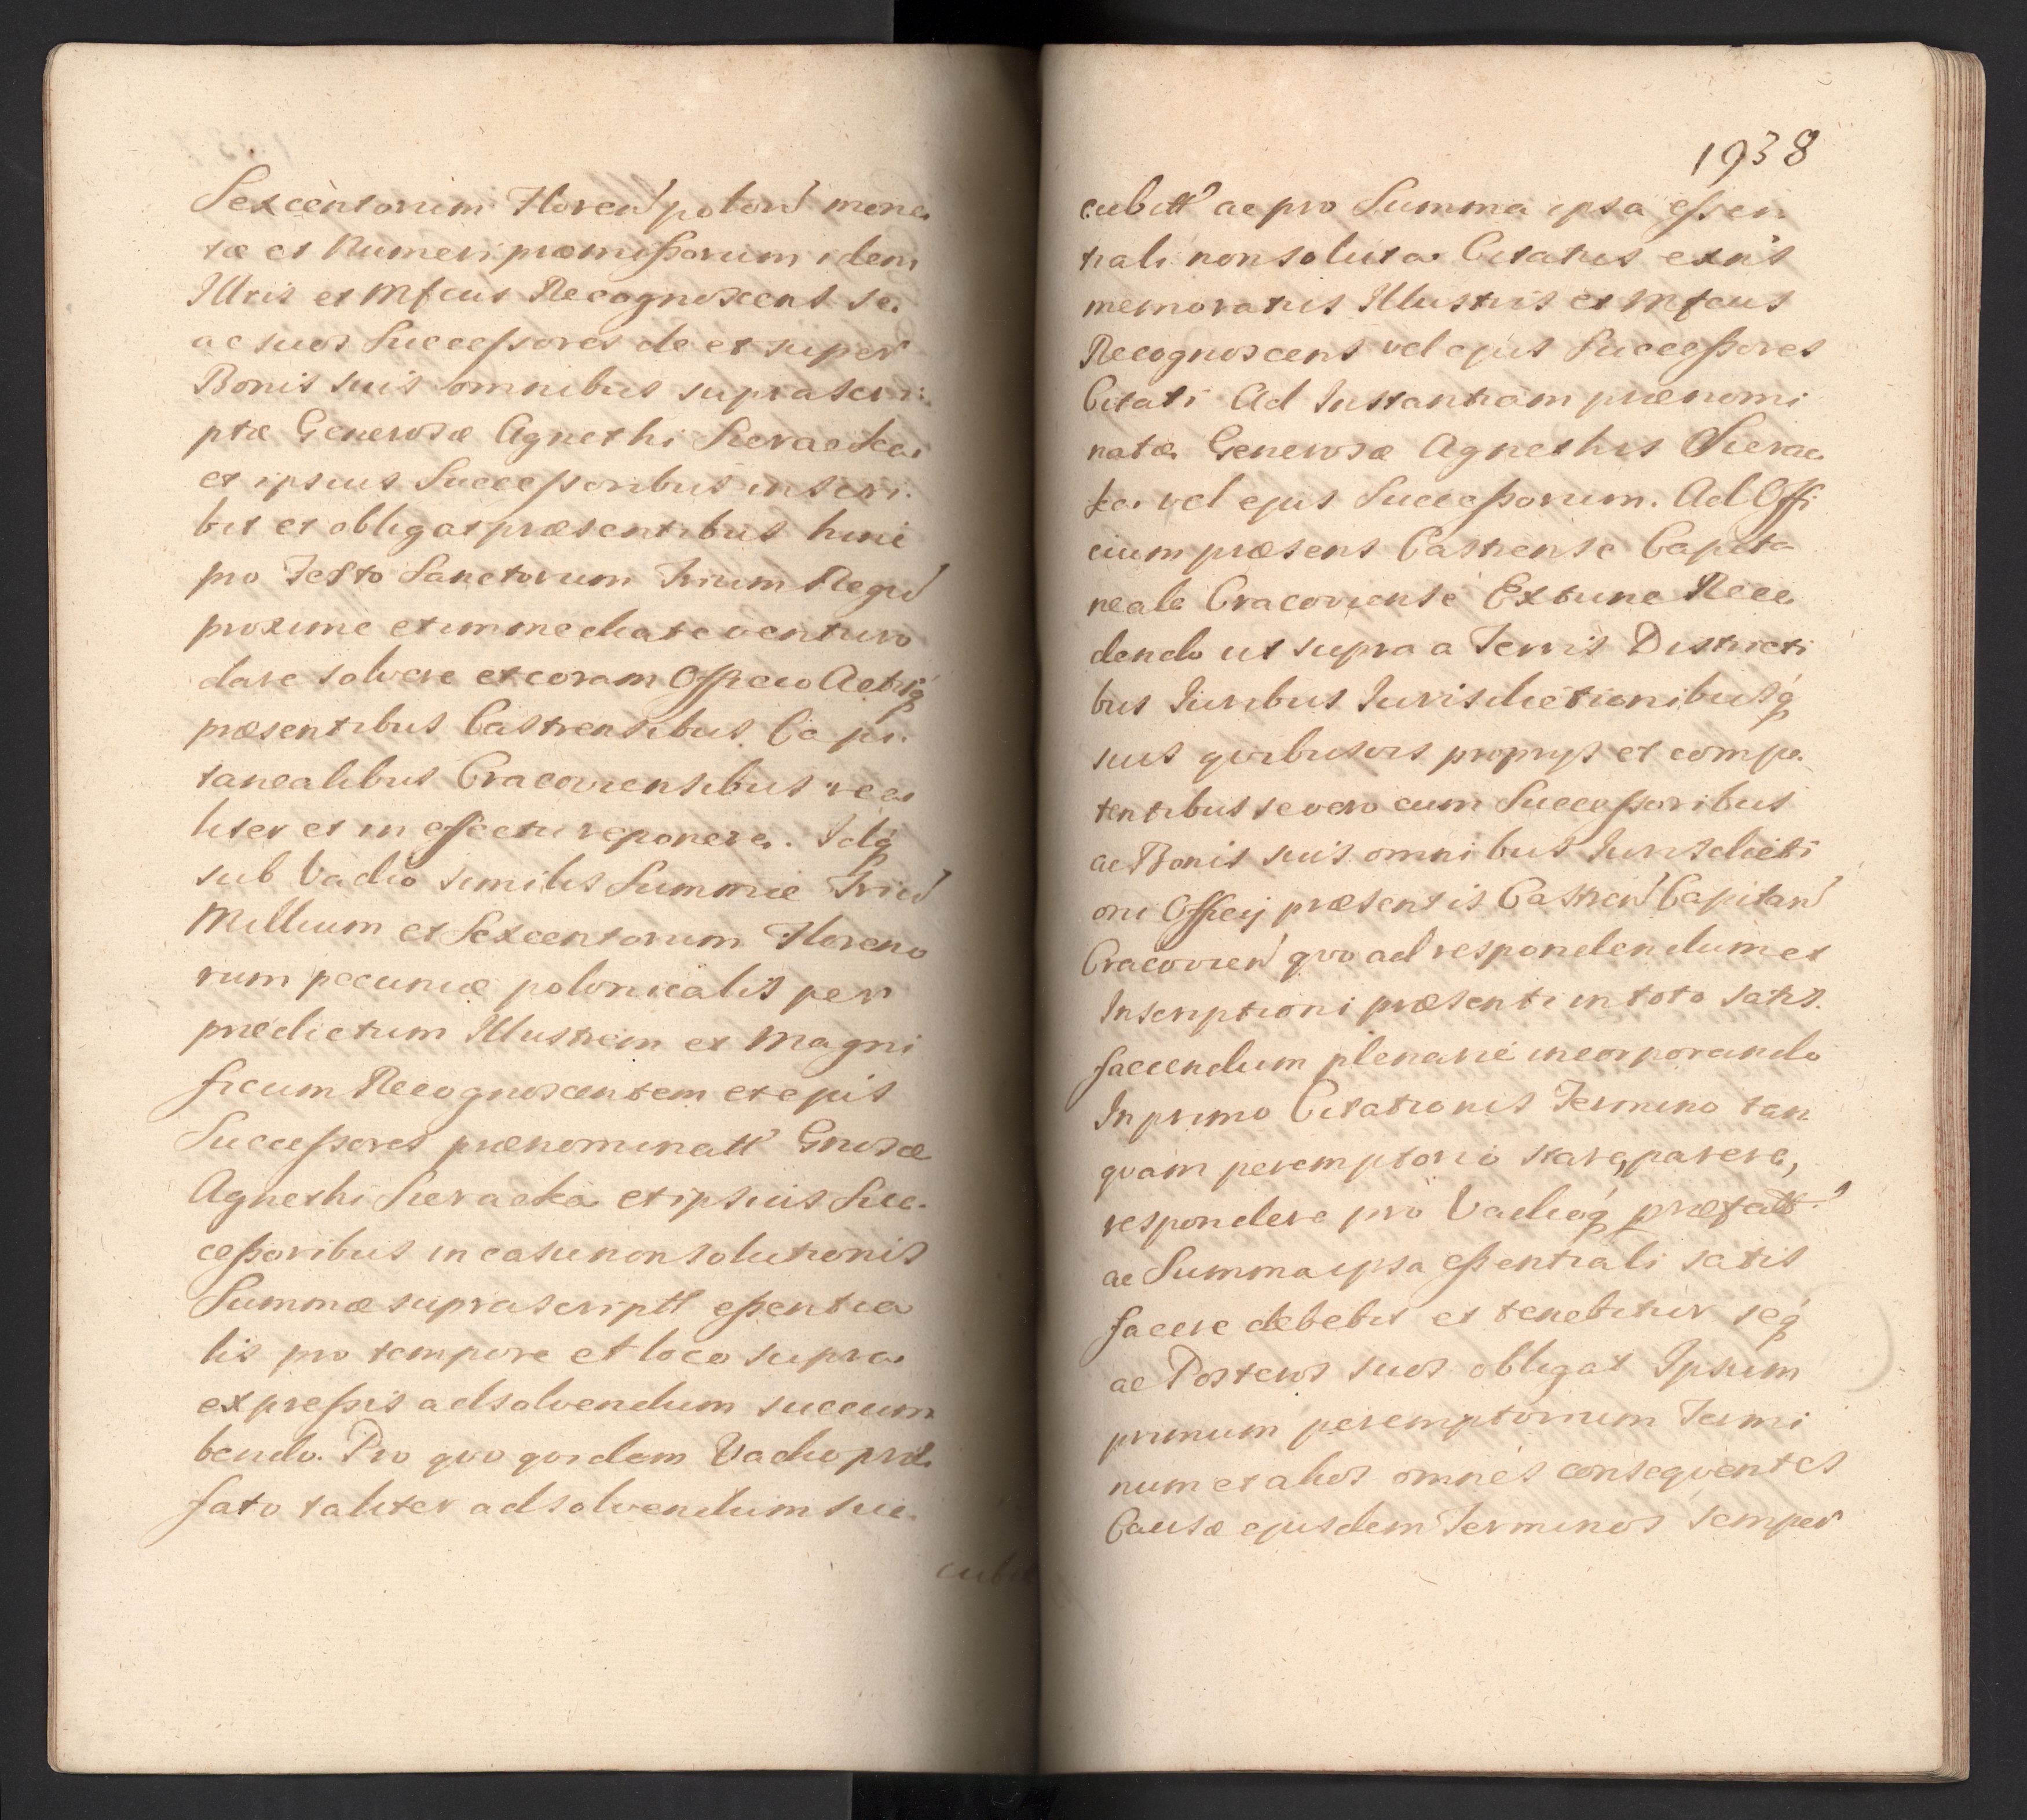 Sexcentorum Floren polon mone
tæ et Numeri præmissorum idem
Illris et Mfcus Recognoscens se
ac suos Successores de et super
Bonis suis omnibus suprascri
ptæ Generosæ Agnethi Sieracka
et ipsius Successoribus inscri
bit et obligat præsentibus hinc
pro Festo Sanctorum Trium Regu
proxime et immediate venturo
dare solvere et coram Officio Actisq
præsentibus Castrensibus Capi
tanealibus Cracoviensibus rea
liter et in effectu reponere. Idq
sub Vadio similis Summæ Triu
Millium et Sexcentorum Floreno
rum pecuniæ polonicalis per
prædictum Illustrem et Magni
ficum Recognoscentem et ejus
Successores prænominatt Gnosæ
Agnethi Sieracka et ipsius Suc
cessoribus in casu non solutionis
Summæ suprascriptt essentia
lis pro tempore et loco supra
expressis adsolvendum succum
bendo. Pro quo quidem Vadio præ
fato taliter adsolvendum suc
cubit
1938
cubitt ac pro Summa ipsa essen
tiali non soluta Citatus extn's
memoratus Illustris et Mfcus
Recognoscens vel ejus Successores
Citati Ad Instantiam prænomi
natæ Generosæ Agnethis Sierac
ka vel ejus Successorum. Ad Offi
cium præsens Castrense Capita
neale Cracoviense Extunc Rece
dendo ut supra a Terris Districti
bus Juribus Jurisdictionibusq
suis quibusvis proprijs et compe
tentibus se vero cum Successoribus
ac Bonis suis omnibus Jurisdicti
oni Officij præsentis Castren Capitan
Cracovien quo ad respondendum et
Inscriptioni præsenti in toto satis
faciendum plenarie incorporando
In primo Citationis Termino tan
quam peremptorio stare, parere,
respondere pro Vadioq præfatt
ac Summa ipsa essentiali satis
facere debebit et tenebitur seq
ac Posteros suos obligat Ipsum
primum peremptorium Termi
num et alios omnes consequentes
Causæ ejusdem Terminos semper